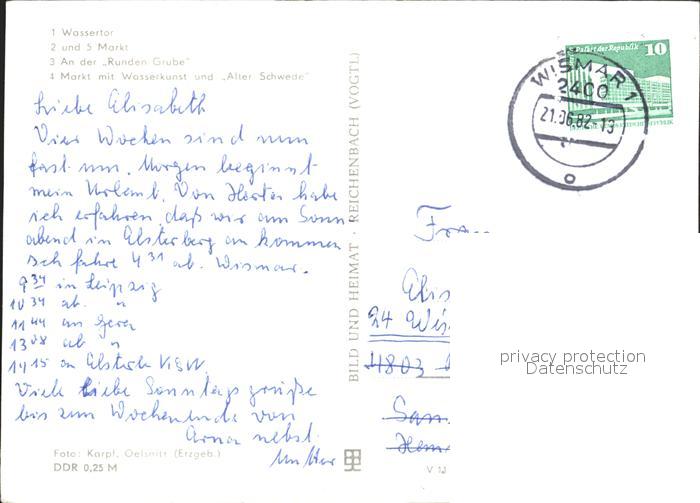 1 Wassertor
2 und 5 Markt
3 An der „Runden Grube"
4 Markt mit Wasserkunst und „Alter Schwede"
Liebe Elisabeth
Vier Wochen sind nun
fast um. Morgen beginnt
mein Urlaub. Von Herta habe
ich erfahren, daß wir am Sonn
abend in Elsterberg an kommen
Ich fahre 4 31 ab. Wismar.
9 34 in Leipzig
10 34 ab. "
11 44 an Gera
13 08 ab "
14 15 an
Viele liebe Sonntagsgrüße
bis zum Wochenende von
Erna nebst
Mutter
Foto: Karpf, Oelsnitz (Erzgeb.)
DDR 0,25 M
BILD UND HEIMAT · REICHENBACH (VOGTL)
V 12
Palast der Republik 10
WISMAR 1
2400
21.06.82-13
Frau
Elis
24 Wis
4803
San
Heim
privacy protection
Datenschutz